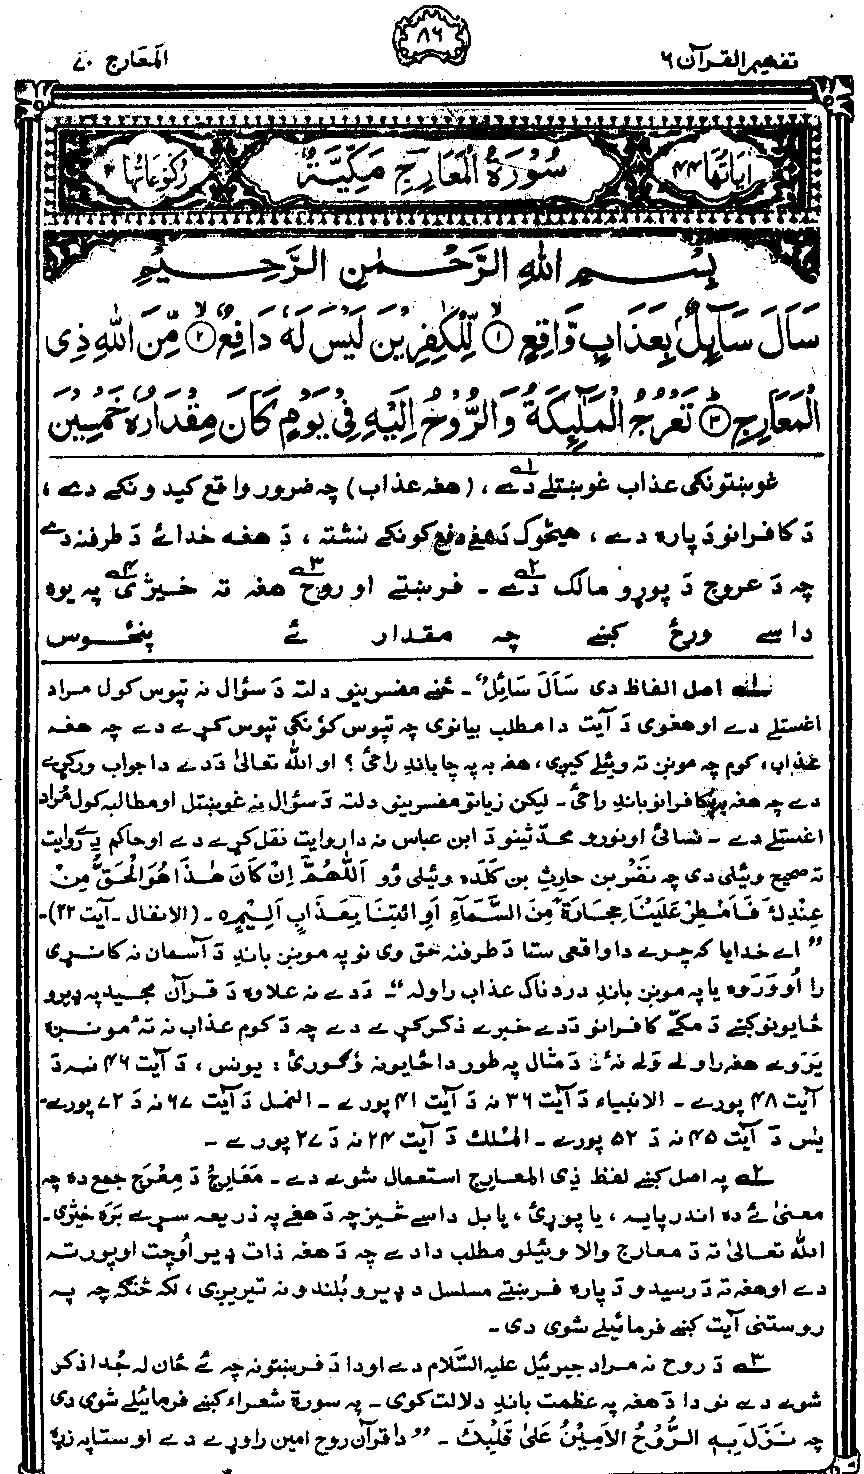 ۸۶
تفهيم القرآن ۶
المعارج ۷۰
اٰيَاتُهَا ۴۴
سُوْرَةُ الْمَعَارِجِ مَكِّيَّةٌ
رُكُوْعَاتُهَا ۲
بِسْمِ اللهِ الرَّحْمٰنِ الرَّحِيْمِ
سَاَلَ سَآئِلٌۢ بِعَذَابٍ وَّاقِعٍ ۙ﴿۱﴾ لِّلْكٰفِرِيْنَ لَيْسَ لَهٗ دَافِعٌ ۙ﴿۲﴾ مِّنَ اللهِ ذِى
الْمَعَارِجِ ؕ﴿۳﴾ تَعْرُجُ الْمَلٰٓئِكَةُ وَالرُّوْحُ اِلَيْهِ فِىْ يَوْمٍ كَانَ مِقْدَارُهٗ خَمْسِيْنَ
غوښتونكى عذاب غوښتلے دے ،۱ (هغه عذاب) چه ضرور واقع كيدونكے دے ،
دَ كافرانو دَ پاره دے ، هيڅوک دَ هغے دفع كونكے نشته ، دَ هغه خدائے دَ طرفنه دے
چه دَ عروج دَ پوړو مالک دے۲ ـ فرښتے او روح۳ هغه ته خيژى۴ په يوه
داسے ورځ كښے چه مقدار ئے پنځوس
۱ اصل الفاظ دى سَاَلَ سَائِلٌ" ـ ځنے مفسرينو دلته دَ سؤال نه تپوس كول مراد
اغستلے دے او هغوى دَ آيت دا مطلب بيانوى چه تپوس كوُنكى تپوس كړے دے چه هغه
عذاب ، كوم چه مونږ ته وئيلے كيږى ، هغه به په چا باندِ راځى ؟ او الله تعالىٰ دَ دے دا جواب وركړے
دے چه هغه به په كافرانو باندِ راځى ـ ليكن زياتو مفسرينو دلته دَ سؤال نه غوښتل او مطالبه كول مُراد
اغستلے دے ـ نسائى او نورو محدّثينو دَ ابن عباس نه دا روايت نقل كړے دے او حاكم دے روايت
ته صحيح وئيلى دى چه نَضَر بن حارِث بن كَلَده وئيلى وُو اَللّٰهُمَّ اِنْ كَانَ هٰذَا هُوَ الْحَقَّ مِنْ
عِنْدِكَ فَاَمْطِرْ عَلَيْنَا حِجَارَةً مِّنَ السَّمَآءِ اَوِ ائْتِنَا بِعَذَابٍ اَلِيْمٍ ه ـ (الانفال ـ آيت ۳۲)ـ
" اے خدايا كه چرے دا واقعى ستا دَ طرفنه حق وى نو په مونږ باندِ دَ آسمان نه كانړى
را اُووَرَوه يا په مونږ باندِ دردناک عذاب راوله" ـ دَ دے نه علاوه دَ قرآن مجيد په ډيرو
ځايونو كښے دَ مكّے كافرانو دَ دے خبرے ذكر كړے دے چه دَ كوم عذاب نه تهٔ مونږه
يَرَوے هغه راولے ولے نهٔ ؟ دَ مثال په طور دا ځايونه وګورئ : يونس ، دَ آيت ۴۶ نه دَ
آيت ۴۸ پورے ـ الانبياء دَ آيت ۳۶ نه دَ آيت ۴۱ پورے ـ النمل دَ آيت ۶۷ نه دَ ۷۲ پورے ـ
يٰس دَ آيت ۴۵ نه دَ ۵۲ پورے ـ المُلك دَ آيت ۲۴ نه دَ ۲۷ پورے ـ
۲ په اصل كښے لفظ ذِى المعارِج استعمال شوے دے ـ مَعَارِجُ دَ مِعْرَج جمع ده چه
معنىٰ ئے ده اندر پايه ، يا پوړئ ، يا بل داسے څيز چه دَ هغے په ذريعه سړے بَره خيژى ـ
الله تعالىٰ ته دَ معارِج والا وئيلو مطلب دا دے چه دَ هغه ذات ډير اُوچت او پورته
دے او هغه ته دَ رسيدو دَ پاره فرښتے مسلسل دَ ډيرو بُلندو نه تيريږى ، لكه څنګه چه په
روستنى آيت كښے فرمائيلے شوى دى ـ
۳ دَ روح نه مراد جبرئيل عليه السّلام دے او دا دَ فرښتونه چه ئے ځان له جُدا ذكر
شوے دے نو دا دَ هغه په عظمت باندِ دلالت كوى ـ په سورة شعراء كښے فرمائيلے شوى دى
چه نَزَلَ بِهِ الرُّوْحُ الْاَمِيْنُ عَلىٰ قَلْبِكَ ـ " دا قرآن روح امين راوړے دے او ستا په زړهٔ